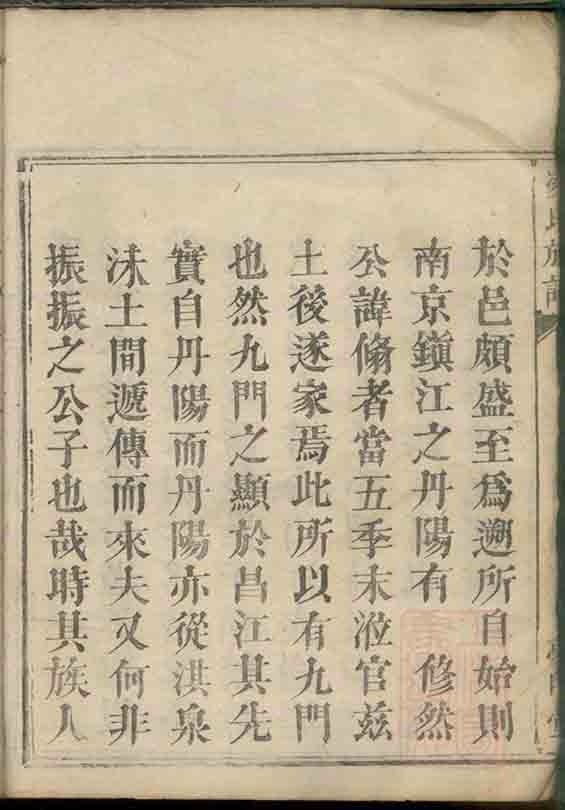 於邑頗盛至爲遡所自始則
南京鎮江之丹陽有　修然
公諱脩者當五季末涖官兹
土後遂家焉此所以有九門
也然九門之顯於昌江其先
實自丹陽而丹陽亦從洪泉
沬土間遞傳而來夫又何非
振振之公子也哉時其族人